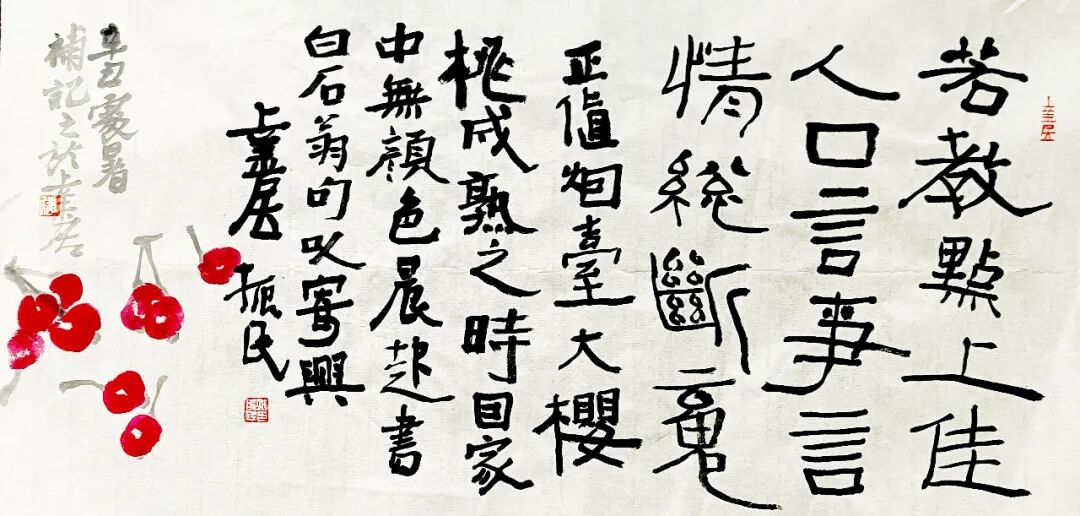 若教點上佳
人口言事言
情總斷䰟
正值烟臺大櫻
桃成熟之時因家
中無顏色晨起書
白石翁句以寄興
居 振民
辛丑處暑
補記之於堇居